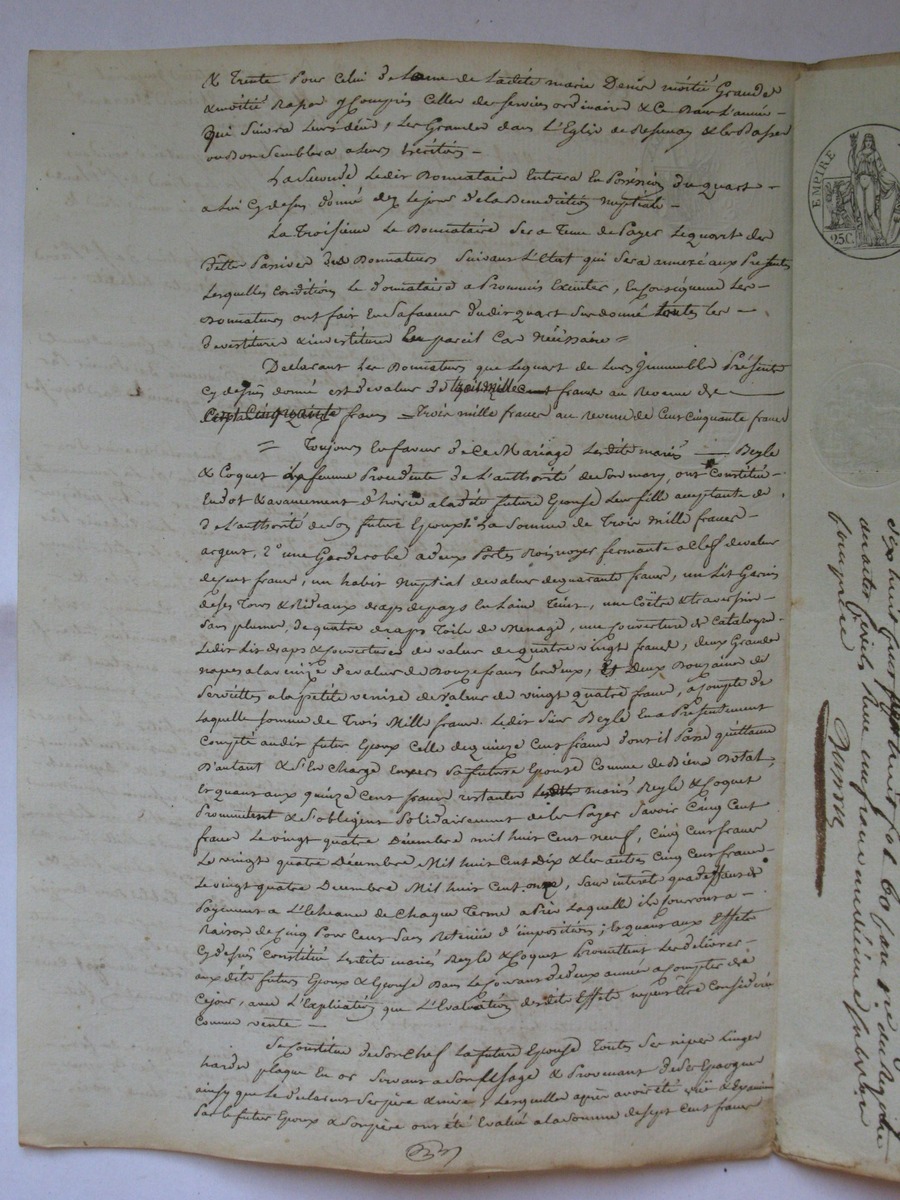 & Trente pour celui de Lame de Ladite marie Denise moitié Grande
& moitié Basse y Compris Celles de services ordinaire & Dans L'année
Qui Suivra Leurs décès, Les Grandes dans L'Eglise de & les Basses
ou Bon Semblera a Leurs heritiers
La Seconde Ledit Donnataire Entrera En Possession du quart
a Lui Cydessus donné dez Lejour de la Benediction Nuptiale
La Troisieme Le Donnataire Sera Tenu de Payer Lequart des
Dettes Passives des Donnateurs Suivant L'Etat qui Sera annexé aux Presentes
Lesquelles Conditions Le donnataire a Promis Executer, En Consequence Les
Donnateurs ont fait En Sa faveur du dit quart Sus donné toutes les
devestitures & investitures En pareil Cas Nécessaires
Declarant Les Donnateurs que Lequart de Leurs Immeubles Présents
cy dessus donné est de valeur de francs au Revenu de
Cent Cinquante francs Trois mille francs au revenu de Cent Cinquante francs
Toujours En faveur de Ce Mariage Lesdits mariés Beyle
& Coquet La femme Procedente de L'authorité de Son mary, ont Constitué
En dot & avancement d'hoirie a ladite future Epouse Leur fille acceptante de
de L'authorité de Son futur Epoux 1° La Somme de Trois Mille francs
argent, 2° une Garderobe a deux Portes Bois noyer fermante a Clef de valeur
de cent francs, un habit Nuptial de valeur de quarante francs, un Lit Garni
de ses Tours & Rideaux draps de pays En Laine Teint, une Coëtre & traversier
Sans plume, de quatre draps Toile de Menage, une Couverture de Catalogne
Ledit Lit draps & Couvertures de valeur de quatre vingt francs, deux Grandes
napes a la venize de valeur de Douze francs les deux, Et Deux Douzaines de
Serviettes a la petite venise de valeur de vingt quatre francs, a Compte de
Laquelle Somme de Trois Mille francs Ledit Sieur Beyle En a Présentement
Compté audit futur Epoux Celle de quinze Cent francs dont il Passe quittance
D'autant & S'En Charge Envers Sa future Epouse Comme de Biens Dotal,
Et quant aux quinze Cent francs restantes mariés Beyle & Coquet
Promettent & S'obligent Solidairement de les Payer Savoir Cinq Cent
francs Le vingt quatre Décembre mil huit Cent neuf, Cinq Cent francs
Le vingt quatre Décembre Mil huit Cent Dix & les autres Cinq Cent francs
Le vingt quatre Decembre Mil huit Cent onze, Sans interet qua deffaut de
Payement a L'Echeance de Chaque Terme après Laquelle ils Couvront a
Raison de Cinq Pour Cent Sans Retenue d'imposition; Et quant aux Effets
Cydessus Constitués Lesdits mariés Beyle & Coquet Promettent Les delivrer
aux dits futurs Epoux & Epouse Dans Le Courant de deux années a Compter de
Cejour, avec L'Explication que L'Evaluation desdits Effets ne peut être Considérée
Comme vente
Se Constitue de Son Chef La future Epouse Toutes Ses nipes Linges
hardes plaque En or Servant a Son Usage & Provenant de Ses Epargnes
ainsy que Le declarent Ses père & mère, Lesquelles après avoir été vüe & Examiné
Par le futur Epoux & Son père ont été Evalué a la Somme de Sept Cent francs
EMPIRE
25C.